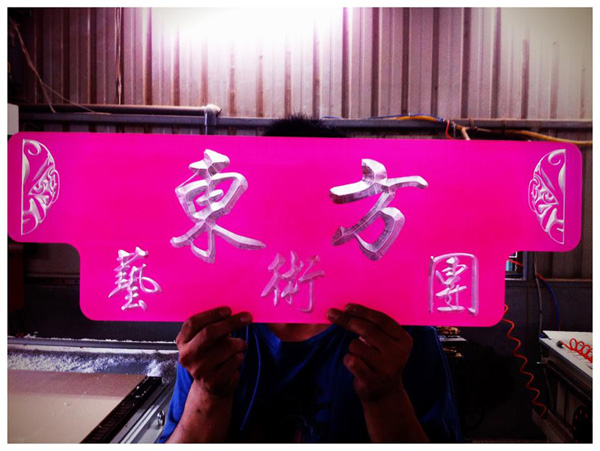 東方
藝術團